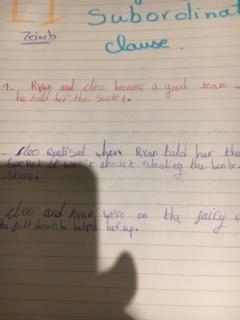 LI Subordinat
Zeineb clause.
1. Ryan and cleo became a good team w
he told her the secret.
. cleo realised when Ryan told her the
secret it wasn't about stealing the
stone.
cleo and Ryan we're on the
he fell down he helped her up.